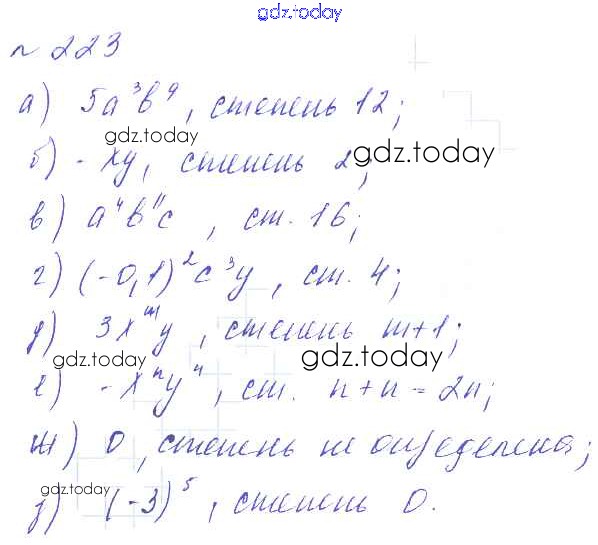 gdz.today
№ 223
а) 5a³b⁹, степень 12;
gdz.today
б) -xy, степень 2;
gdz.today
в) a⁴b¹¹c, ст. 16;
г) (-0,1)²c³y, ст. 4;
д) 3xᵐy, степень m+1;
gdz.today
gdz.today
е) -xⁿyⁿ, ст. n+n = 2n;
ж) 0, степень не определена;
gdz.today
з) (-3)⁵, степень 0.